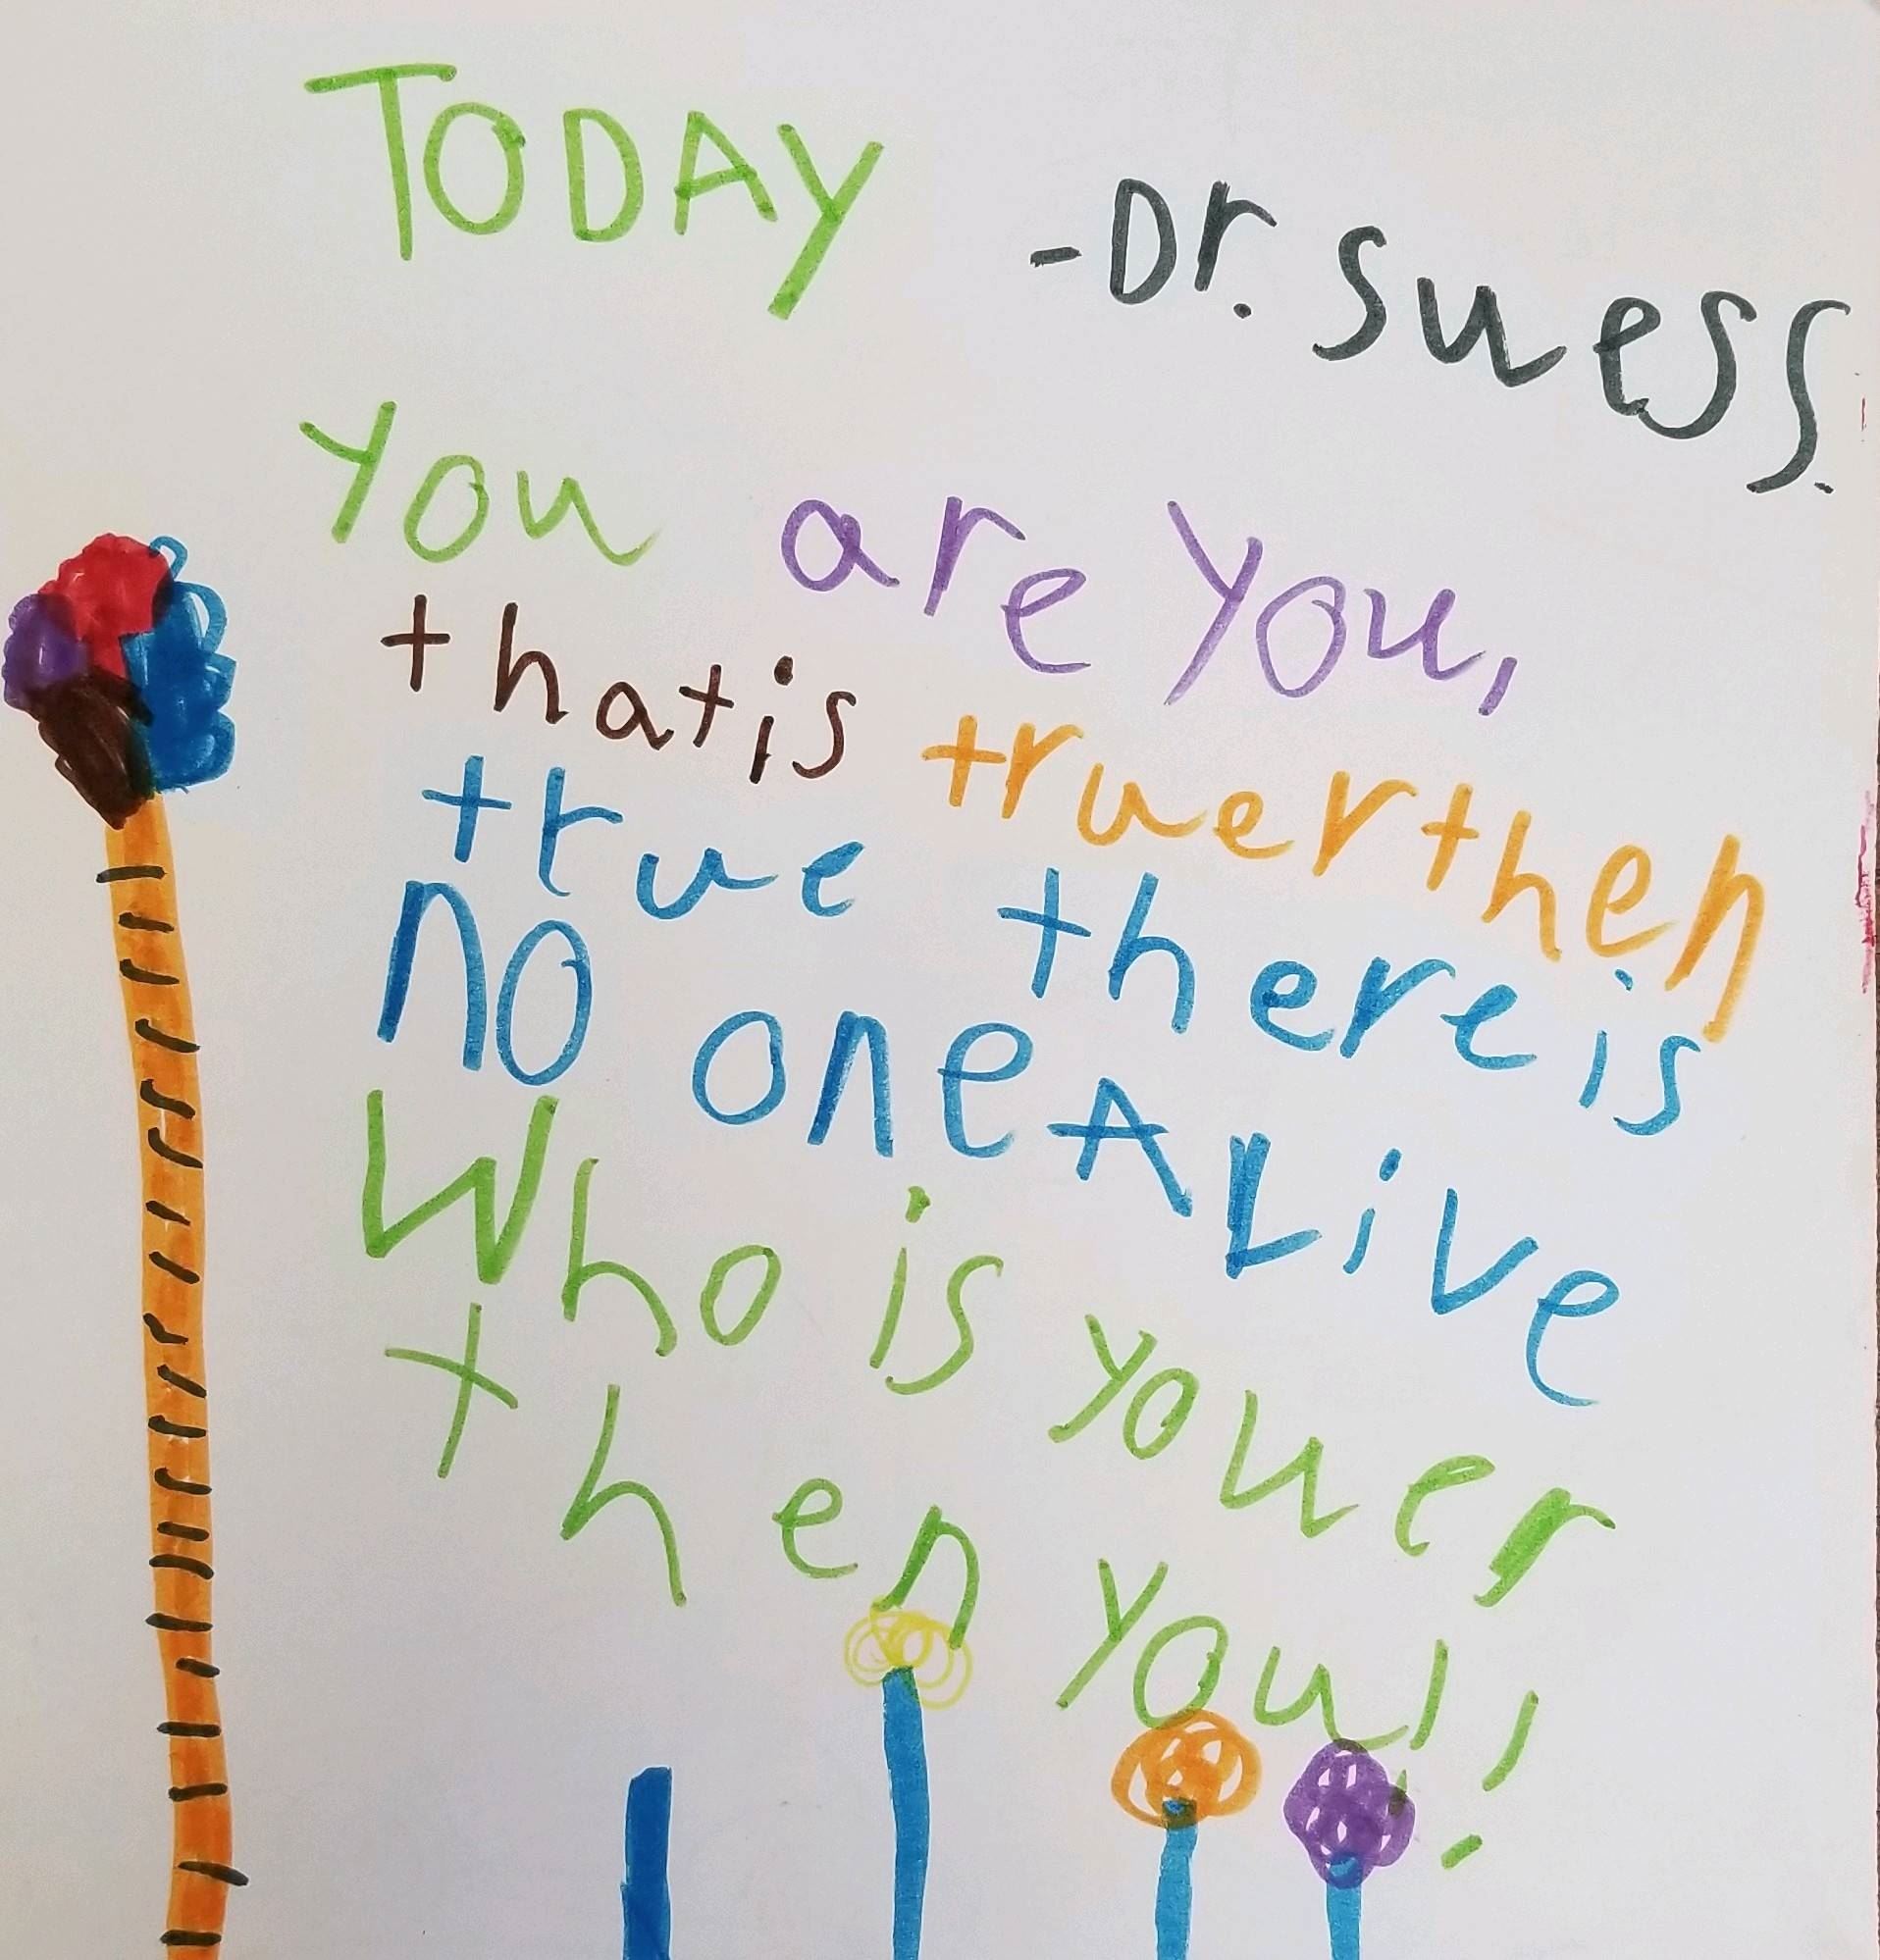 TODAY
-Dr. suess.
you are you,
that is truer then
true there is
no one ALive
Who is youer
then you!!